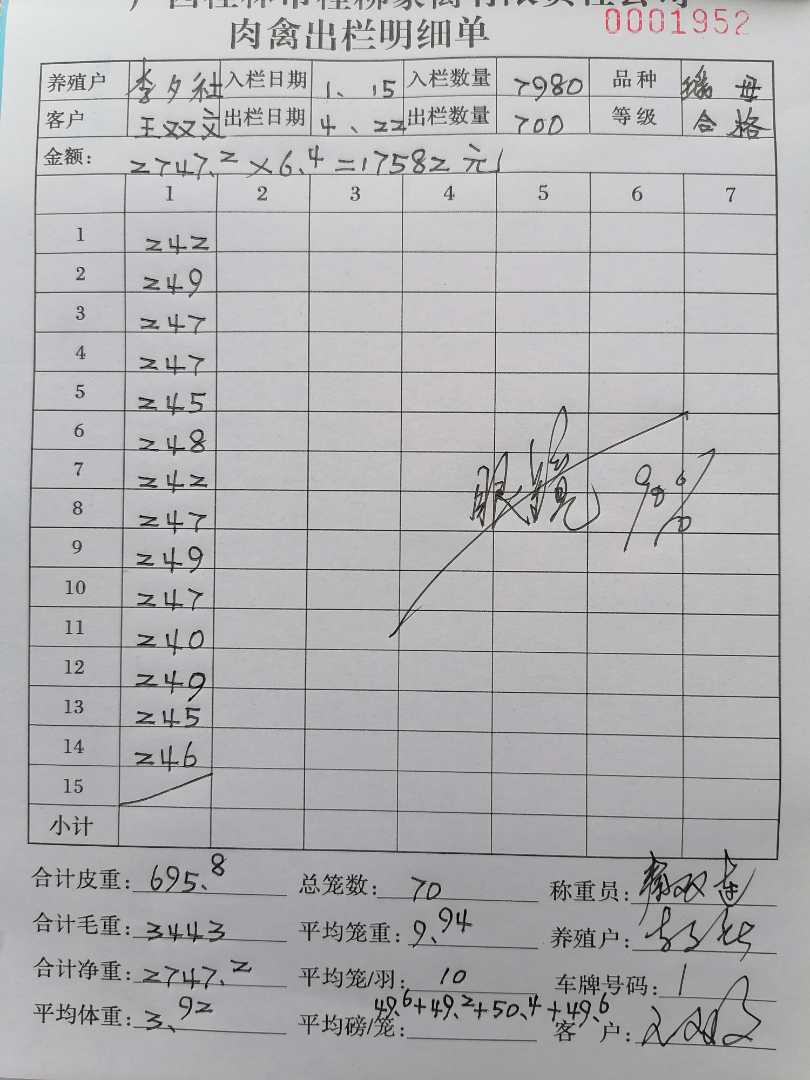 广西桂林市桂柳家禽有限责任公司
肉禽出栏明细单 0001952
养殖户 李夕社 入栏日期 1、15 入栏数量 7980 品种 母
客户 王双文 出栏日期 4、22 出栏数量 700 等级 合格
金额: 2747.2×6.4=17582元
1 2 3 4 5 6 7
1 242
2 249
3 247
4 247
5 245
6 248
7 242
8 247
9 249
10 247
11 240
12 249
13 245
14 246
15
小计
眼镜 90%
合计皮重: 695.8 总笼数: 70 称重员:
合计毛重: 3443 平均笼重: 9.94 养殖户:
合计净重: 2747.2 平均笼/羽: 10 车牌号码: 1
平均体重: 3.92 平均磅/笼: 49.6+49.2+50.4+49.6 客户: